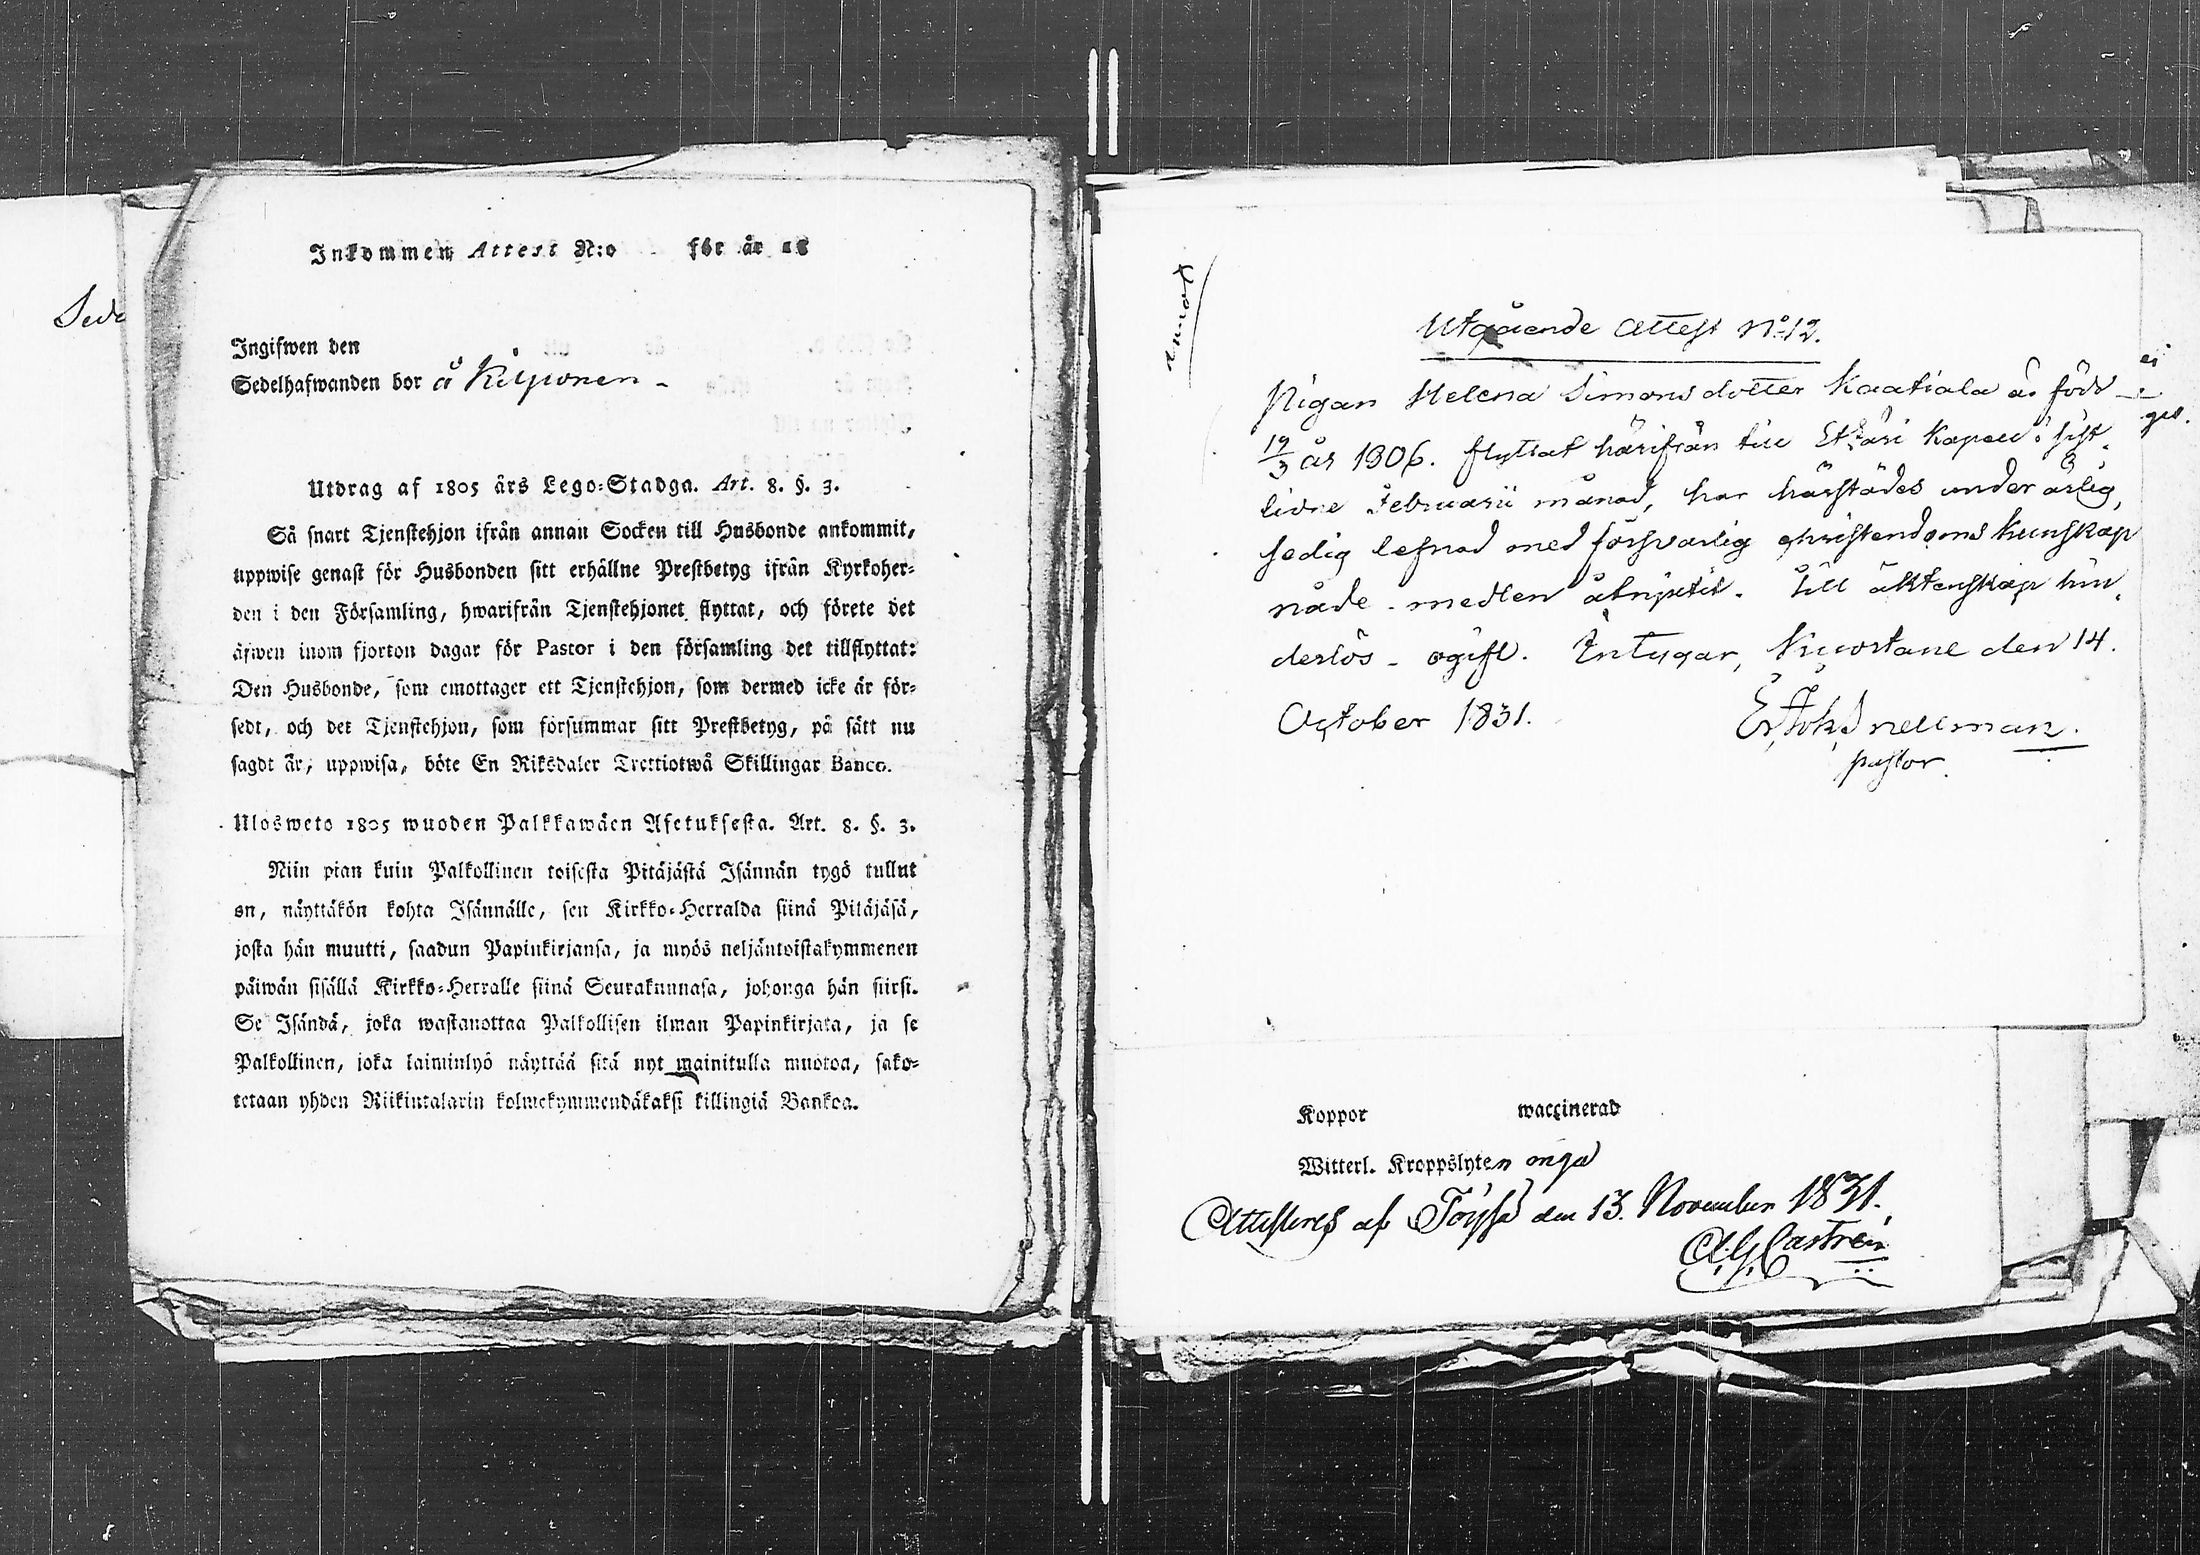 Inkommen Attest N:o för år 18
Ingifwen den
Sedelhafwanden bor å
Utdrag af 1805 års Lego-Stadga. Art. 8. §. 3.
Så snart Tjenstehjon ifrån annan Socken till Husbonde ankommit,
uppwise genast för Husbonden sitt erhållne Prestbetyg ifrån Kyrkoher-
den i den Församling, hwarifrån Tjenstehjonet flyttat, och förete det
äfwen inom fjorton dagar för Pastor i den församling det tillflyttat:
Den Husbonde, som emottager ett Tjenstehjon, som dermed icke är för-
sedt, och det Tjenstehjon, som försummar sitt Prestbetyg, på sätt nu
sagdt är, uppwisa, böte En Riksdaler Trettiotwå Skillingar Banco.
Ulosweto 1805 wuoden Palkkawäen Asetuksesta. Art. 8. §. 3.
Niin pian kuin Palkollinen toisesta Pitäjästä Isännän tygö tullut
on, näyttäkön kohta Isännälle, sen Kirkko-Herralda siinä Pitäjäsä,
josta hän muutti, saadun Papinkirjansa, ja myös neljäntoistakymmenen
päiwän sisällä Kirkko-Herralle siinä Seurakunnasa, johonga hän siirsi.
Se Isändä, joka wastanottaa Palkollisen ilman Papinkirjata, ja se
Palkollinen, joka laiminlyö näyttää sitä nyt mainitulla muotoa, sako-
tetaan yhden Riikintalarin kolmekymmendäkaksi killingiä Bankoa.
Utgående Attest No 12.
Pigan Helena Simonsdotter Kaatiala är född
19/3 år 1806. flyttat härifrån till Etsäri Kapell i sist-
lidne Februarii månad, har härstädes under ärlig,
sedig lefnad med försvarlig christendoms kunskap
nåde-medlen åtnjutit. Till äktenskap hin-
derlös - ogift. Intygar, Kuortane den 14.
October 1831.
Er Joh Snellman.
pastor
Koppor waccinerad
Witterl. Kroppslyten inga
Attesteras af Töysä den 13. November 1831.
A. G. Castrén